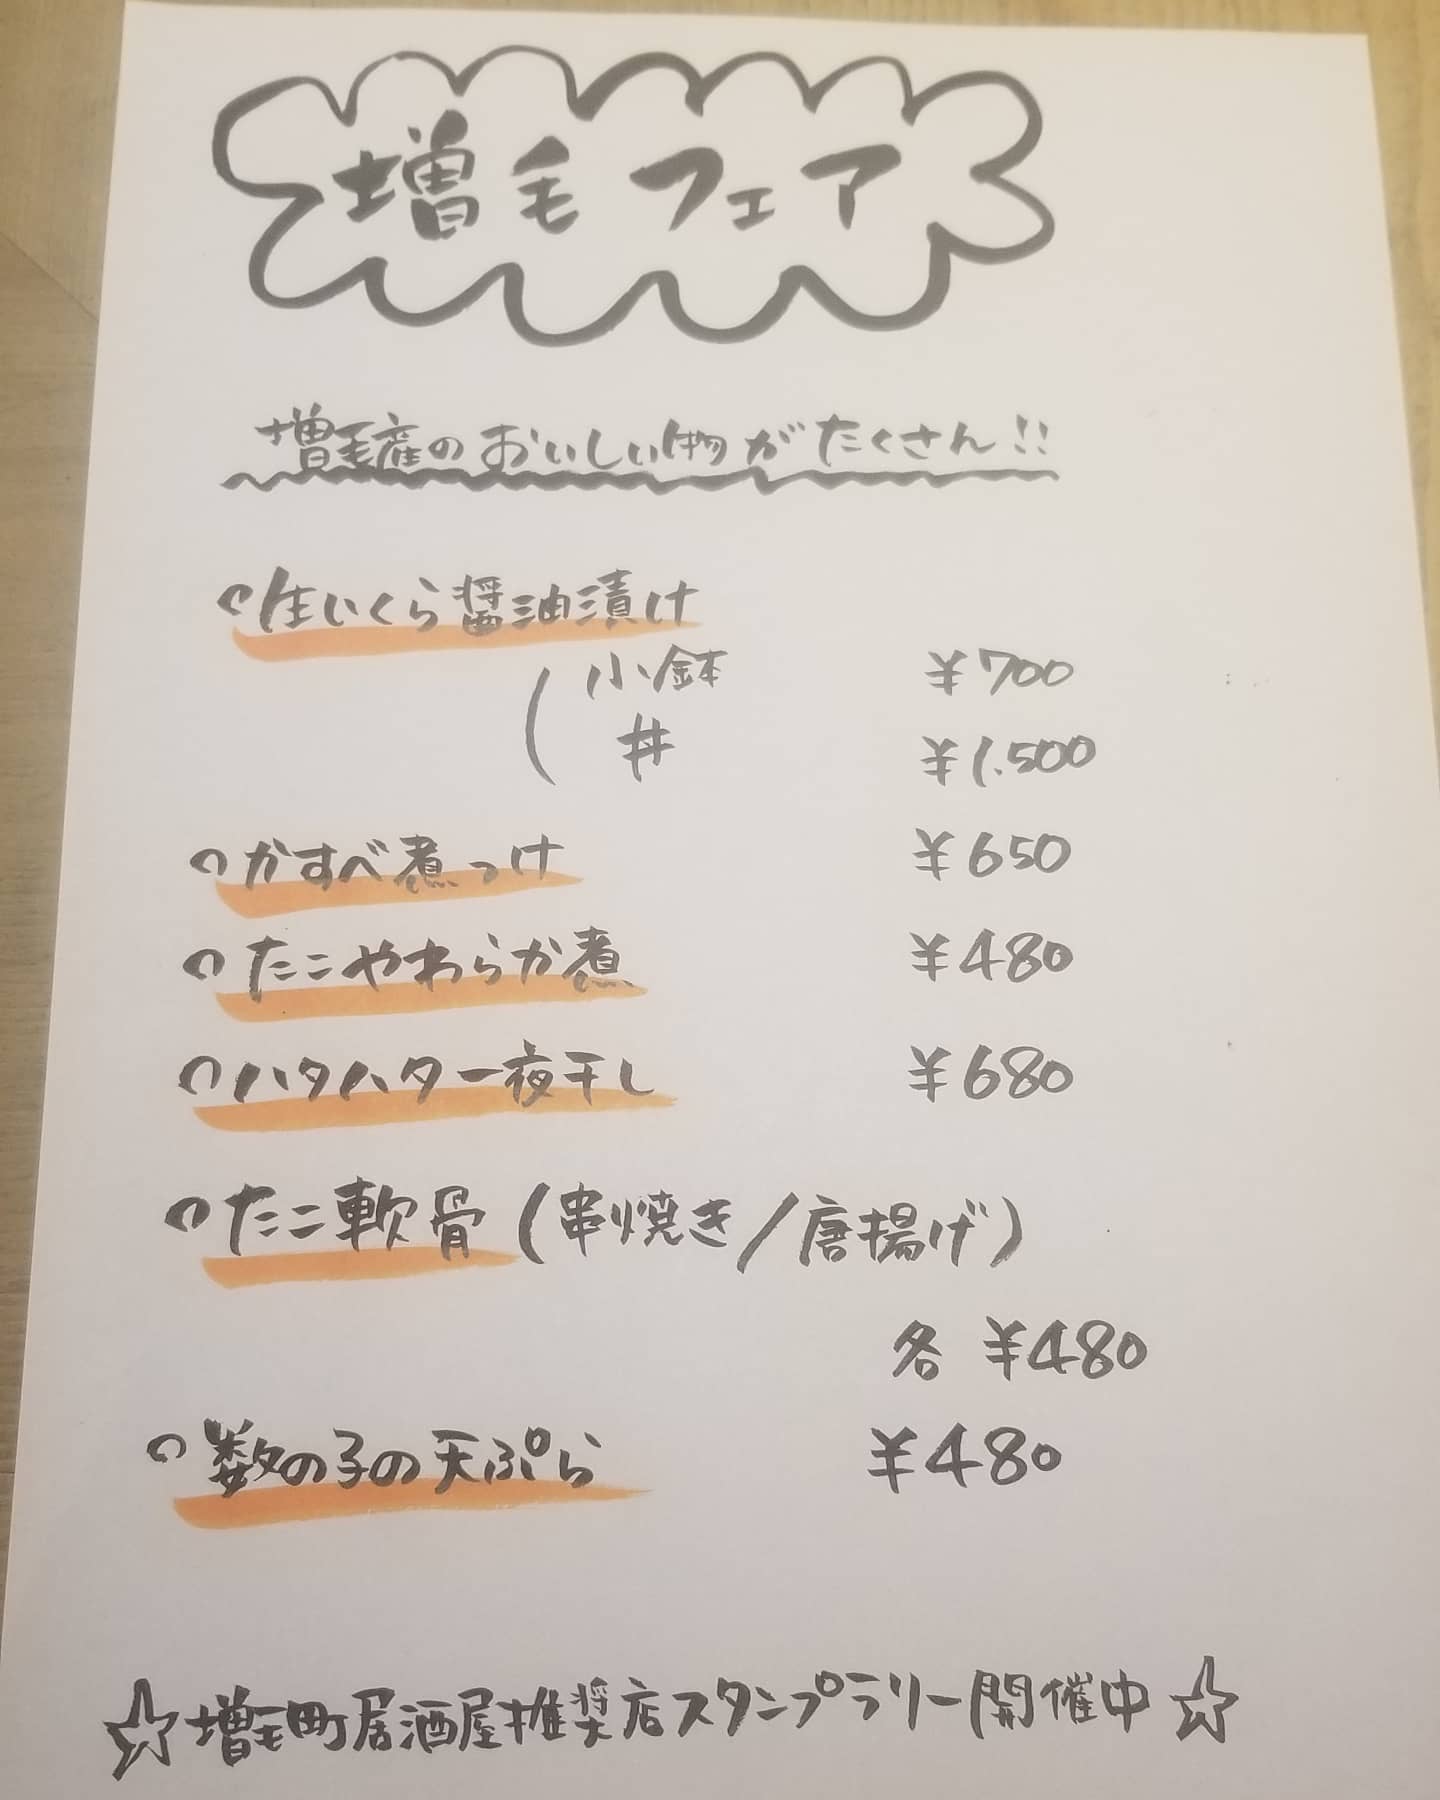 増毛フェア
増毛産のおいしい物がたくさん!!
○生いくら醤油漬け
(小鉢 ¥700
丼 ¥1.500
○かすべ煮つけ ¥650
○たこやわらか煮 ¥480
○ハタハタ一夜干し ¥680
○たこ軟骨(串焼き/唐揚げ)
各 ¥480
○数の子の天ぷら ¥480
☆増毛町居酒屋推奨店スタンプラリー開催中☆